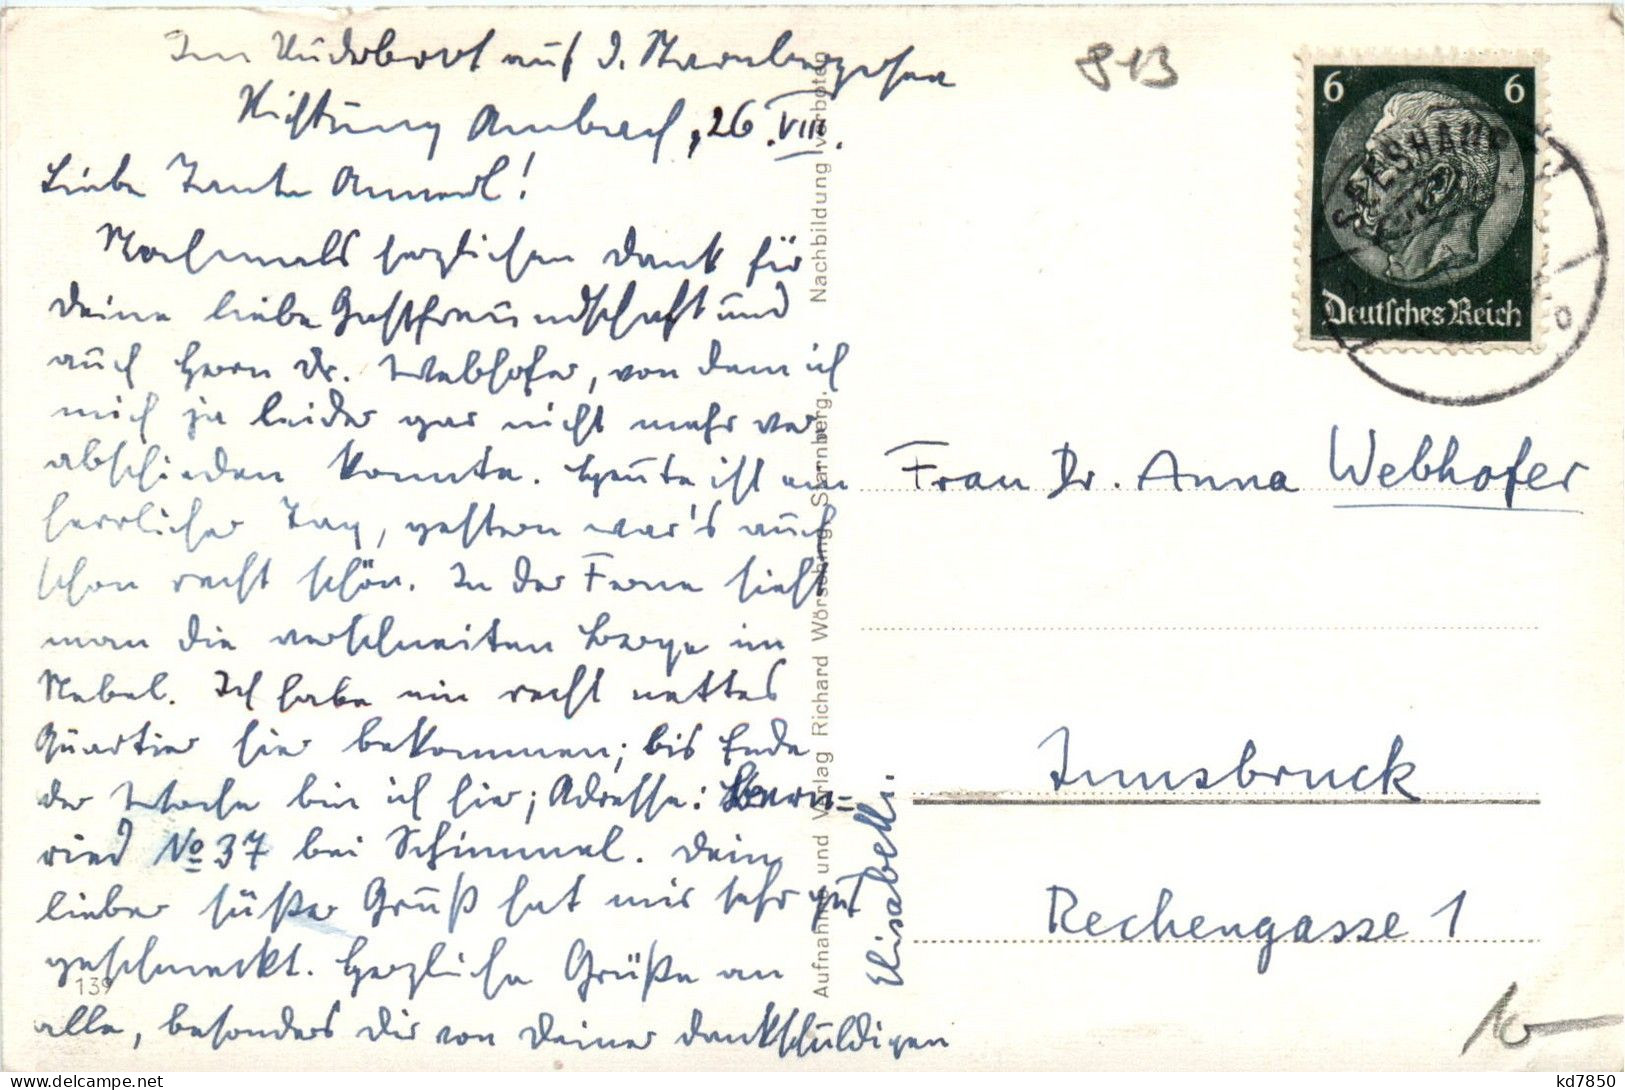 Im Ruderboot auf d. Starnbergersee
Richtung Ambach, 26. VIII.
Liebe Tante Annerl!
Nochmals herzlichen Dank für
Deine liebe Gastfreundschaft und
auch Herrn Dr. Webhofer, von dem ich
mich ja leider gar nicht mehr ver
abschieden konnte. Heute ist ein
herrlicher Tag, gestern war's auch
schon recht schön. In der Ferne sieht
man die verschneiten Berge im
Nebel. Ich habe ein recht nettes
Quartier hier bekommen; bis Ende
der Woche bin ich hier; Adresse: Bern=
ried No 37 bei Schimmel. Dein
lieber süßer Gruß hat mir sehr gut
geschmeckt. Herzliche Grüße an
alle, besonders Dir von Deiner dankschuldigen
Elisabeth.
139
Aufnahme und Verlag Richard Wörsching, Starnberg. Nachbildung verboten
813
6 6
Deutsches Reich
SEESHAUPT
Frau Dr. Anna Webhofer
Innsbruck
Rechengasse 1
10-
kd7850